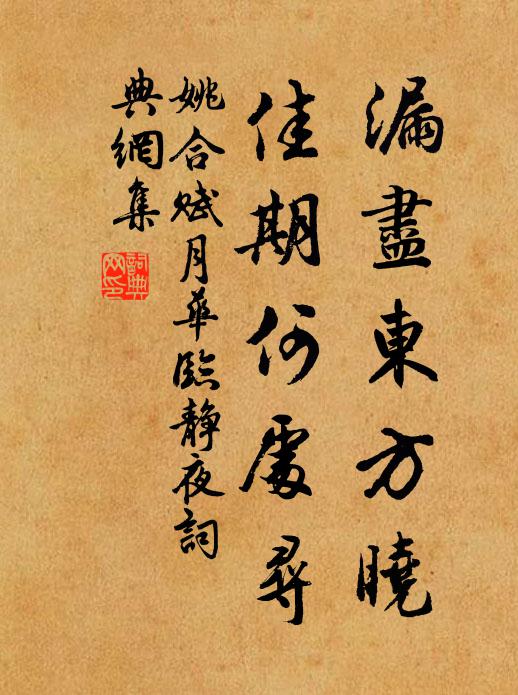 漏盡東方曉
佳期何處尋
姚合賦月華臨靜夜詞
典網集
詞典網印